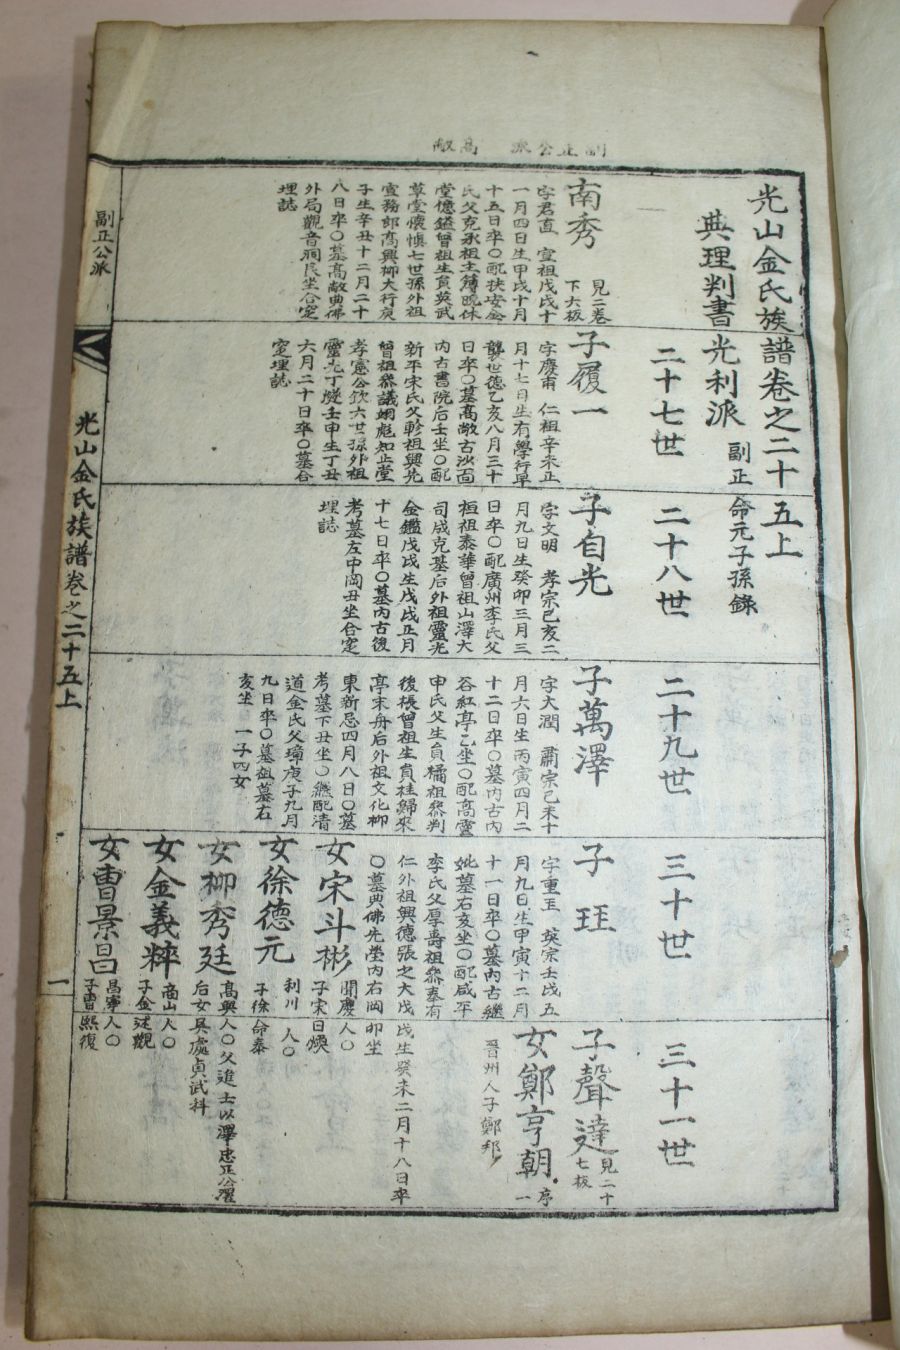 副正公派 高敞
光山金氏族譜卷之二十五上
典理判書光利派 副正命元子孫錄
二十七世
二十八世
二十九世
三十世
三十一世
南秀
見二卷
下六板
字君直 宣祖戊戌十
一月四日生甲戌十月
十五日卒○配扶安金
氏父克承祖主簿晩休
堂億鎰曾祖生員英武
草堂懷愼七世孫外祖
宣務郎高興柳大行庚
子生辛丑十二月二十
八日卒○墓高敞典佛
外局觀音洞艮坐合窆
埋誌
子履一
字慶甫 仁祖辛未正
月十七日生有學行早
襲世德乙亥八月三十
日卒○墓高敞古沙面
內古書院后壬坐○配
新平宋氏父軫祖興先
曾祖參議蜩彪知止堂
孝憲公欽六世孫外祖
靈光丁燧壬申生丁丑
六月二十日卒○墓合
窆埋誌
子自光
字文明 孝宗己亥二
月九日生癸卯三月三
日卒○配廣州李氏父
桓祖泰華曾祖山澤大
司成克基后外祖靈光
金鑑戊戌生戊戌正月
十七日卒○墓內古後
考墓左中岡丑坐合窆
埋誌
子萬澤
字大潤 肅宗己未十
月六日生丙寅四月二
十二日卒○墓內古內
谷紅亭乙坐○配高靈
申氏父生員橘祖參判
後棖曾祖生員桂歸來
亭末舟后外祖文化柳
東新忌四月八日○墓
考墓下丑坐○繼配清
道金氏父瑋庚子九月
九日卒○墓祖墓右
亥坐 一子四女
子 玨
字重玉 英宗壬戌五
月九日生甲寅十二月
十一日卒○墓內古繼
妣墓右亥坐○配咸平
李氏父厚壽祖參奉有
仁外祖興德張之大戊
戌生癸未二月十八日卒
○墓典佛先塋內右岡 卯坐
子聲達
見二十
七板
女鄭亨朝
晉州人子鄭邦
序一
女宋斗彬
開慶人○
子宋日煥
女徐德元
利川人○
子徐命泰
女柳秀廷
高興人○父進士以澤忠正公濯
后女吳處貞武科
女金義粹
商山人○
子金廷觀
女曹景昌
昌寧人○
子曹熙復
副正公派
光山金氏族譜卷之二十五上
一